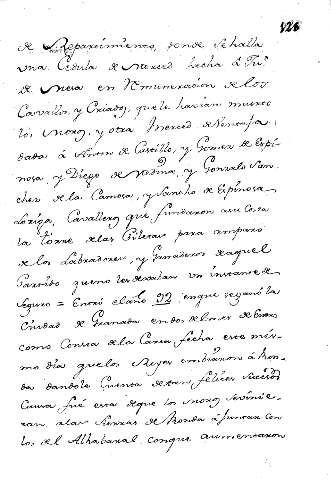 126
de Repartimiento, donde se halla
una Cedula de Merced hecha á
de Mesa en Remuneracion de los
Cavallos, y Criados, que le havian muerto
los Moros, y otra Merced de
dada á Anton de Castillo, y Gomez de Espi-
nosa y Diego de Medina, y Gonzalo San-
chez de la Camosa, y Sancho de Espinosa
Loriga, Cavalleros que fundaron a su Costa
la torre de las Piletas para amparo
de los Labradores, y Ganaderos de aquel
Partido que no los dexaban un instante de
Seguro = Entró el año 92 en que se ganó la
Ciudad de Granada en dos de Enero
como Consta de la Carta fecha este mis-
mo dia que los Reyes embiaron á Ron-
da dandole Cuenta de tan felices Sucesos
Causa fué esta de que los Moros se vinie-
ran a las Sierras de Ronda á juntar con
los del Alhabaral conque aumentaron